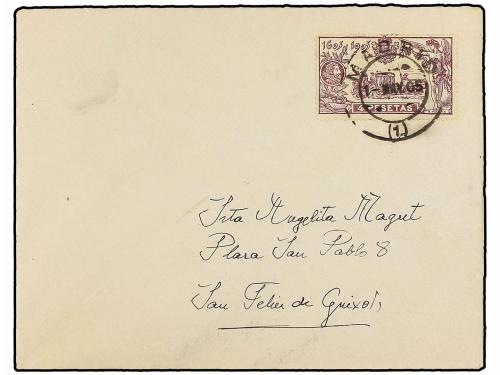 1605 1905
MADRID
1-MAY.05
4 PESETAS
(1.)
Srta Angelita Maguet
Plaza San Pablo 8
San Feliu de Guixols